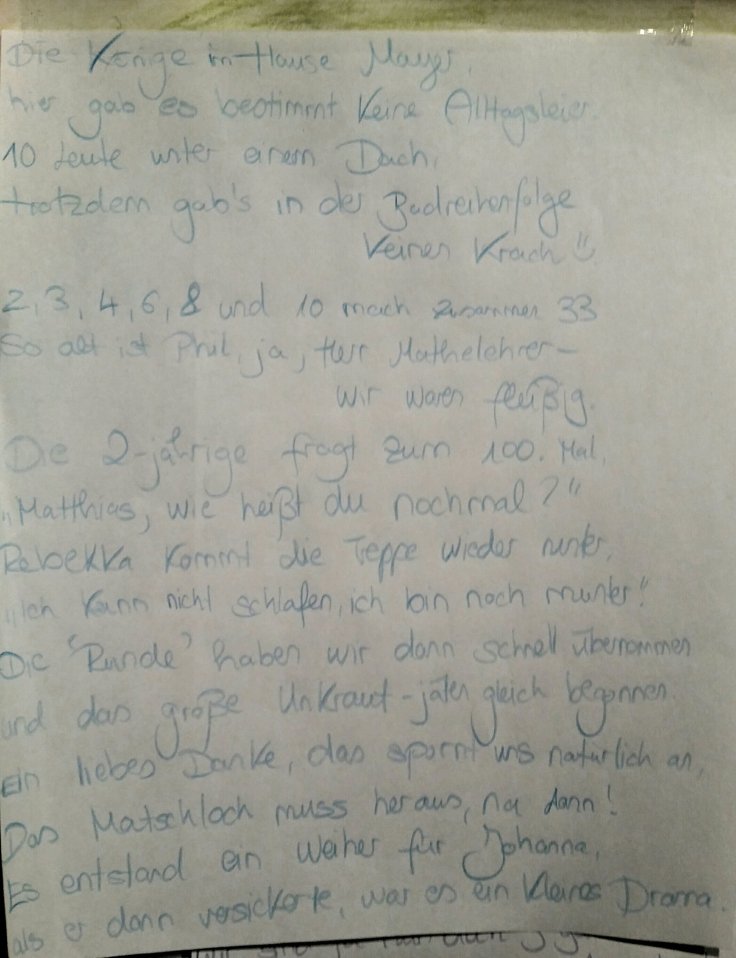 Die Könige im Hause Mayer,
hier gab es bestimmt keine Alltagsleier.
10 Leute unter einem Dach,
trotzdem gab's in der Badreihenfolge
keinen Krach
2, 3, 4, 6, 8 und 10 mach zusammen 33
So alt ist Phil, ja, Herr Mathelehrer –
wir waren fleißig.
Die 2-jährige fragt zum 100. Mal,
"Matthias, wie heißt du nochmal?"
Rebekka kommt die Teppe wieder runter,
"ich kann nicht schlafen, ich bin noch munter!"
Die 'Runde' haben wir dann schnell übernommen
und das große Unkraut-jäten gleich begonnen.
Ein liebes Danke, das spornt uns natürlich an,
Das Matschloch muss heraus, na dann!
Es entstand ein Weiher für Johanna,
als er dann versickerte, war es ein kleines Drama.